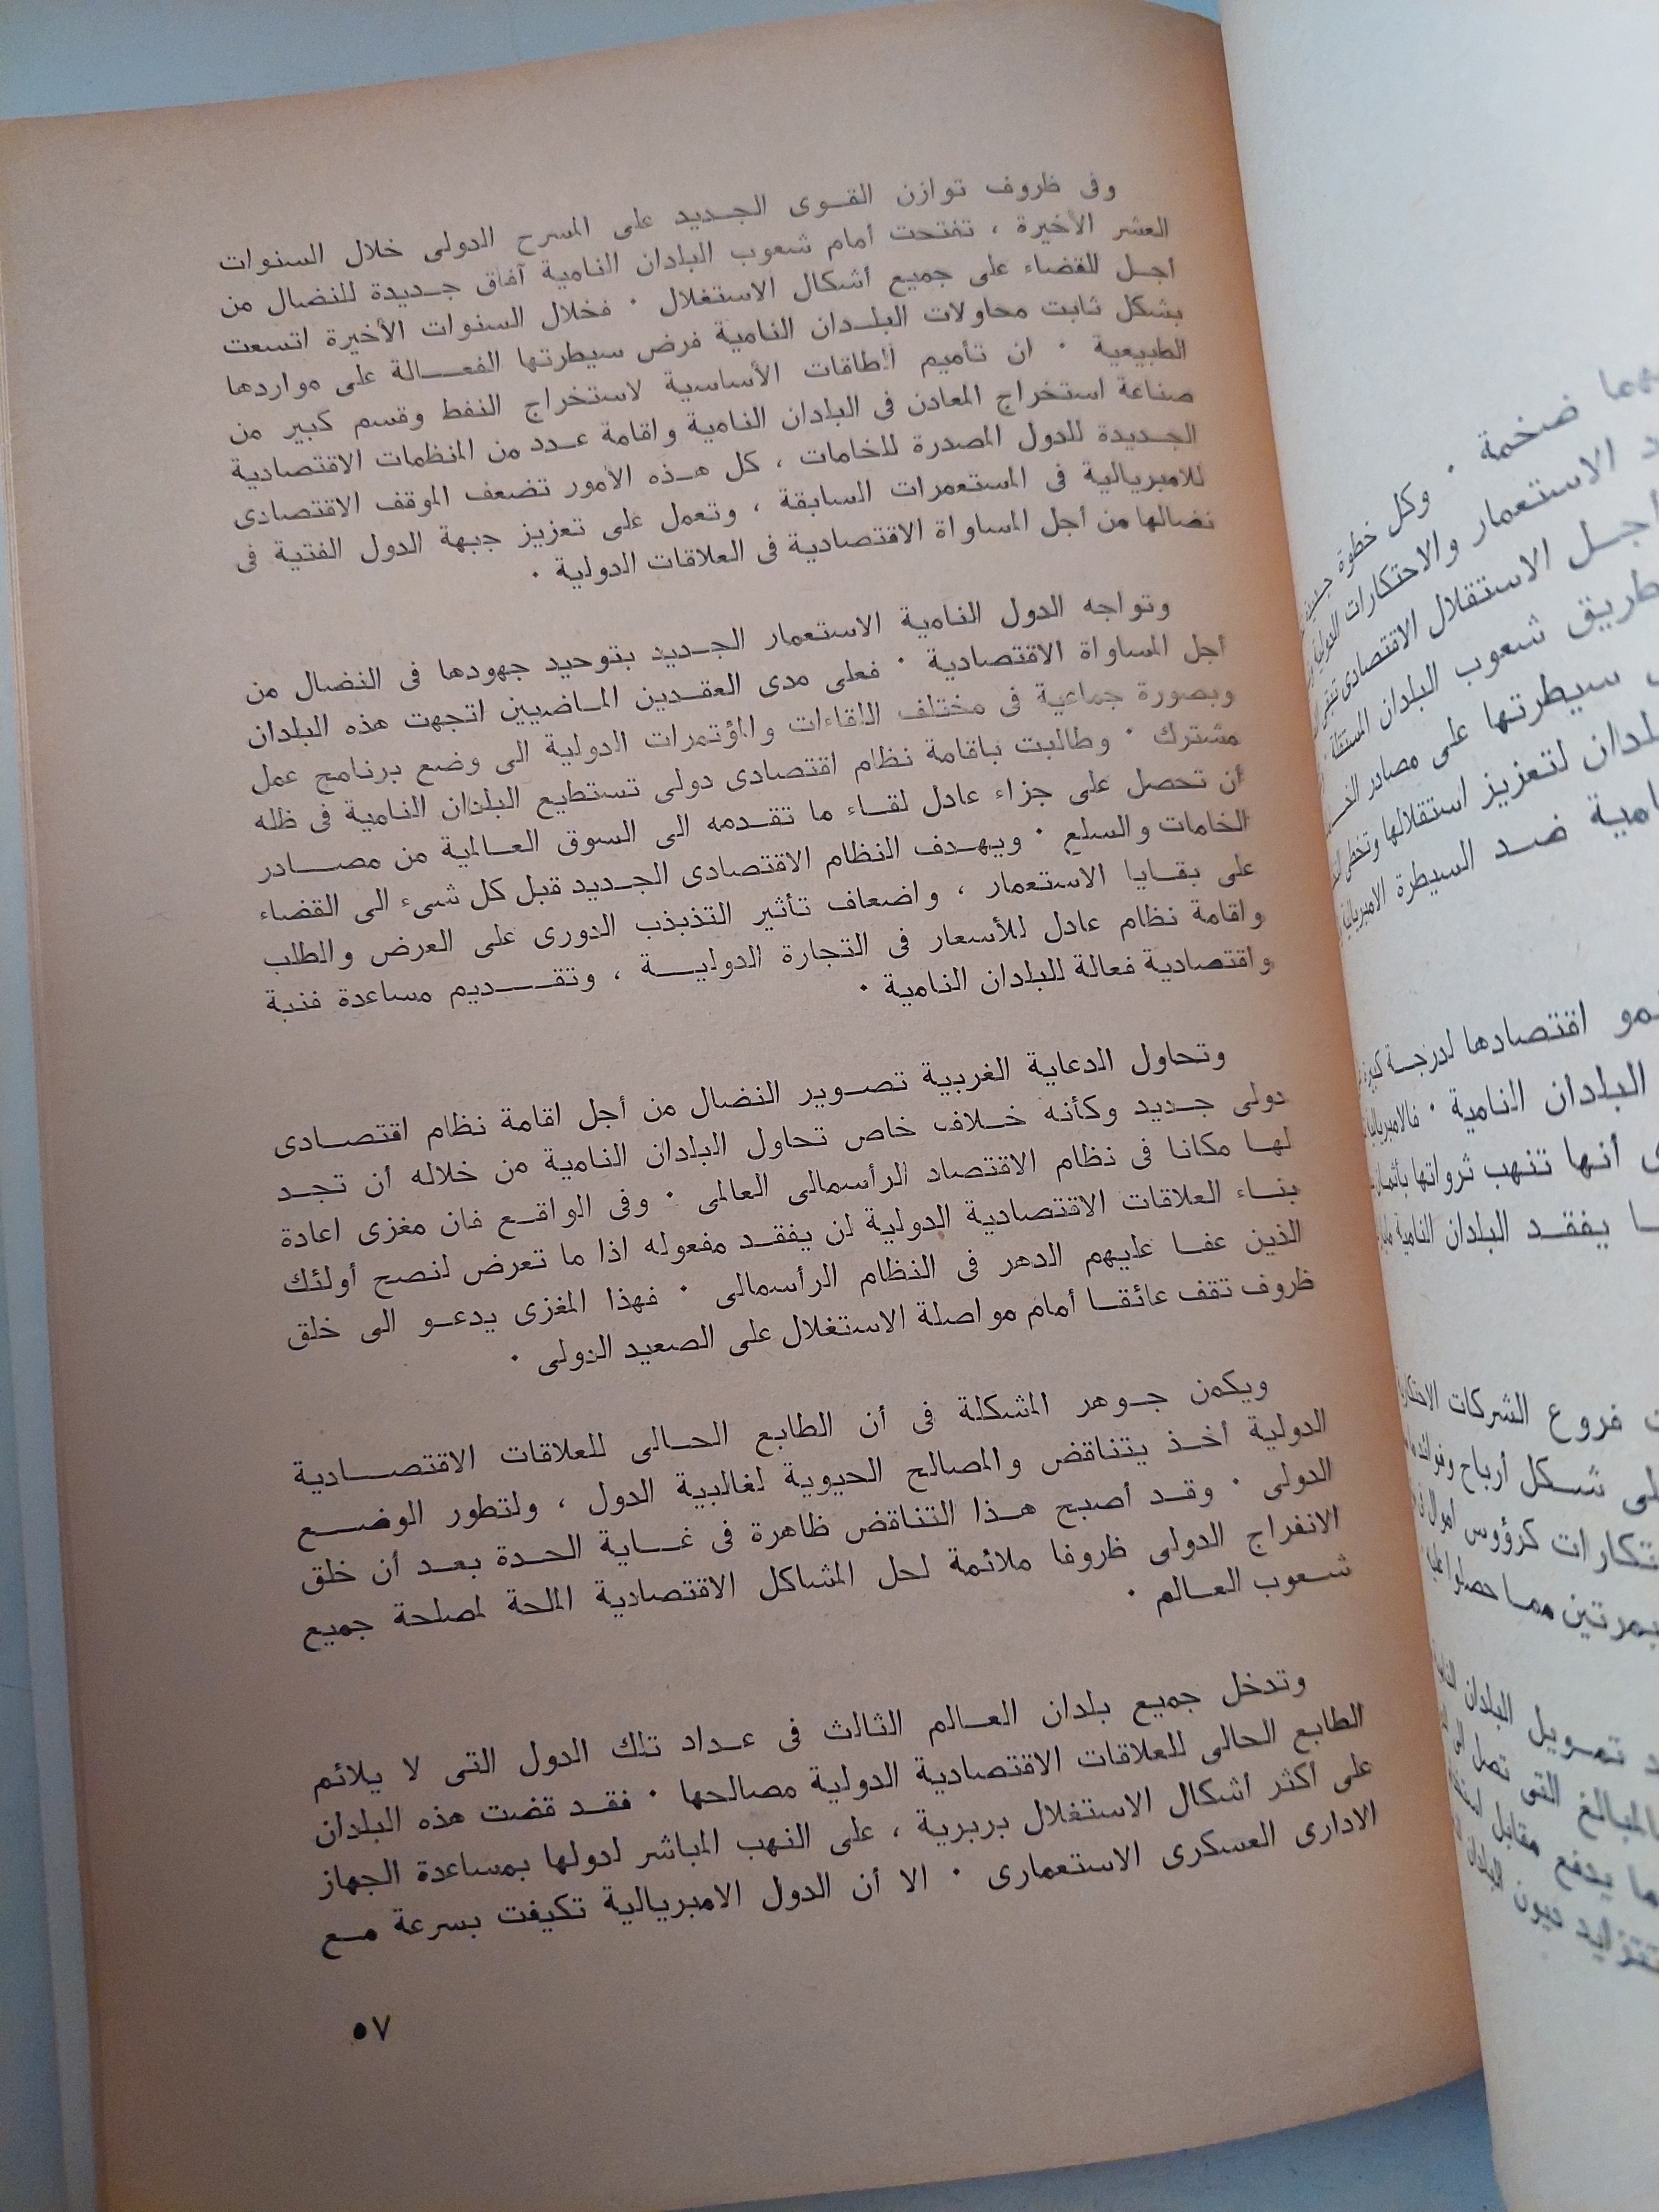 وفى ظروف توازن القوى الجديد على المسرح الدولى خلال السنوات
العشر الأخيرة ، تفتحت أمام شعوب البلدان النامية آفاق جديدة للنضال من
أجل القضاء على جميع أشكال الاستغلال . فخلال السنوات الأخيرة اتسعت
بشكل ثابت محاولات البلدان النامية فرض سيطرتها الفعالة على مواردها
الطبيعية . ان تأميم الطاقات الأساسية لاستخراج النفط وقسم كبير من
صناعة استخراج المعادن فى البلدان النامية واقامة عدد من المنظمات الاقتصادية
الجديدة للدول المصدرة للخامات ، كل هذه الأمور تضعف الموقف الاقتصادى
للامبريالية فى المستعمرات السابقة ، وتعمل على تعزيز جبهة الدول الفتية فى
نضالها من أجل المساواة الاقتصادية فى العلاقات الدولية .
وتواجه الدول النامية الاستعمار الجديد بتوحيد جهودها فى النضال من
أجل المساواة الاقتصادية . فعلى مدى العقدين الماضيين اتجهت هذه البلدان
وبصورة جماعية فى مختلف اللقاءات والمؤتمرات الدولية الى وضع برنامج عمل
مشترك . وطالبت باقامة نظام اقتصادى دولى تستطيع البلدان النامية فى ظله
أن تحصل على جزاء عادل لقاء ما تقدمه الى السوق العالمية من مصادر
الخامات والسلع . ويهدف النظام الاقتصادى الجديد قبل كل شىء الى القضاء
على بقايا الاستعمار ، واضعاف تأثير التذبذب الدورى على العرض والطلب
واقامة نظام عادل للأسعار فى التجارة الدولية ، وتقديم مساعدة فنية
واقتصادية فعالة للبلدان النامية .
وتحاول الدعاية الغربية تصوير النضال من أجل اقامة نظام اقتصادى
دولى جديد وكأنه خلاف خاص تحاول البلدان النامية من خلاله أن تجد
لها مكانا فى نظام الاقتصاد الرأسمالى العالمى . وفى الواقع فان مغزى اعادة
بناء العلاقات الاقتصادية الدولية لن يفقد مفعوله اذا ما تعرض لنصح أولئك
الذين عفا عليهم الدهر فى النظام الرأسمالى . فهذا المغزى يدعو الى خلق
ظروف تقف عائقا أمام مواصلة الاستغلال على الصعيد الدولى .
ويكمن جوهر المشكلة فى أن الطابع الحالى للعلاقات الاقتصادية
الدولية أخذ يتناقض والمصالح الحيوية لغالبية الدول ، ولتطور الوضع
الدولى . وقد أصبح هذا التناقض ظاهرة فى غاية الحدة بعد أن خلق
الانفراج الدولى ظروفا ملائمة لحل المشاكل الاقتصادية الملحة لمصلحة جميع
شعوب العالم .
وتدخل جميع بلدان العالم الثالث فى عداد تلك الدول التى لا يلائم
الطابع الحالى للعلاقات الاقتصادية الدولية مصالحها . فقد قضت هذه البلدان
على أكثر أشكال الاستغلال بربرية ، على النهب المباشر لدولها بمساعدة الجهاز
الادارى العسكرى الاستعمارى . الا أن الدول الامبريالية تكيفت بسرعة مع
٥٧
ضخمة . وكل خطوة
الاستعمار والاحتكارات الدولية
أجل الاستقلال الاقتصادى
طريق شعوب البلدان المستقلة
سيطرتها على مصادر
لتعزيز استقلالها وتخطى
ضد السيطرة الامبريالية
اقتصادها لدرجة كبيرة
البلدان النامية .
أنها تنهب ثرواتها
يفقد البلدان النامية
فروع الشركات
شكل أرباح
كرؤوس أموال
بمرتين مما حصلوا
تمويل البلدان
التى تصل الى
يدفع مقابل
ديون